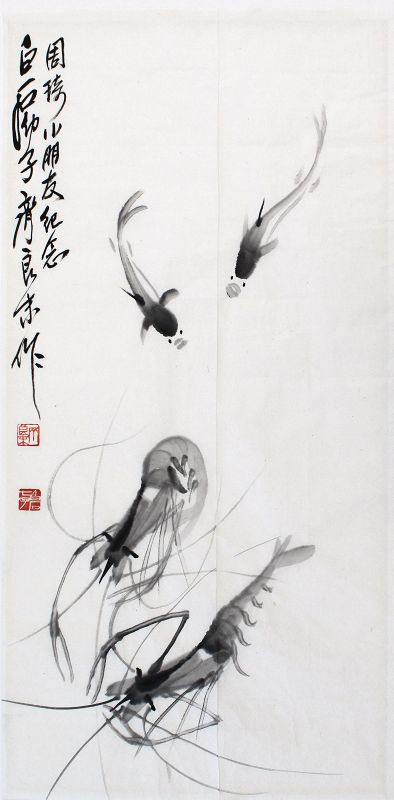 周琦小朋友纪念
白石幼子齊良末作